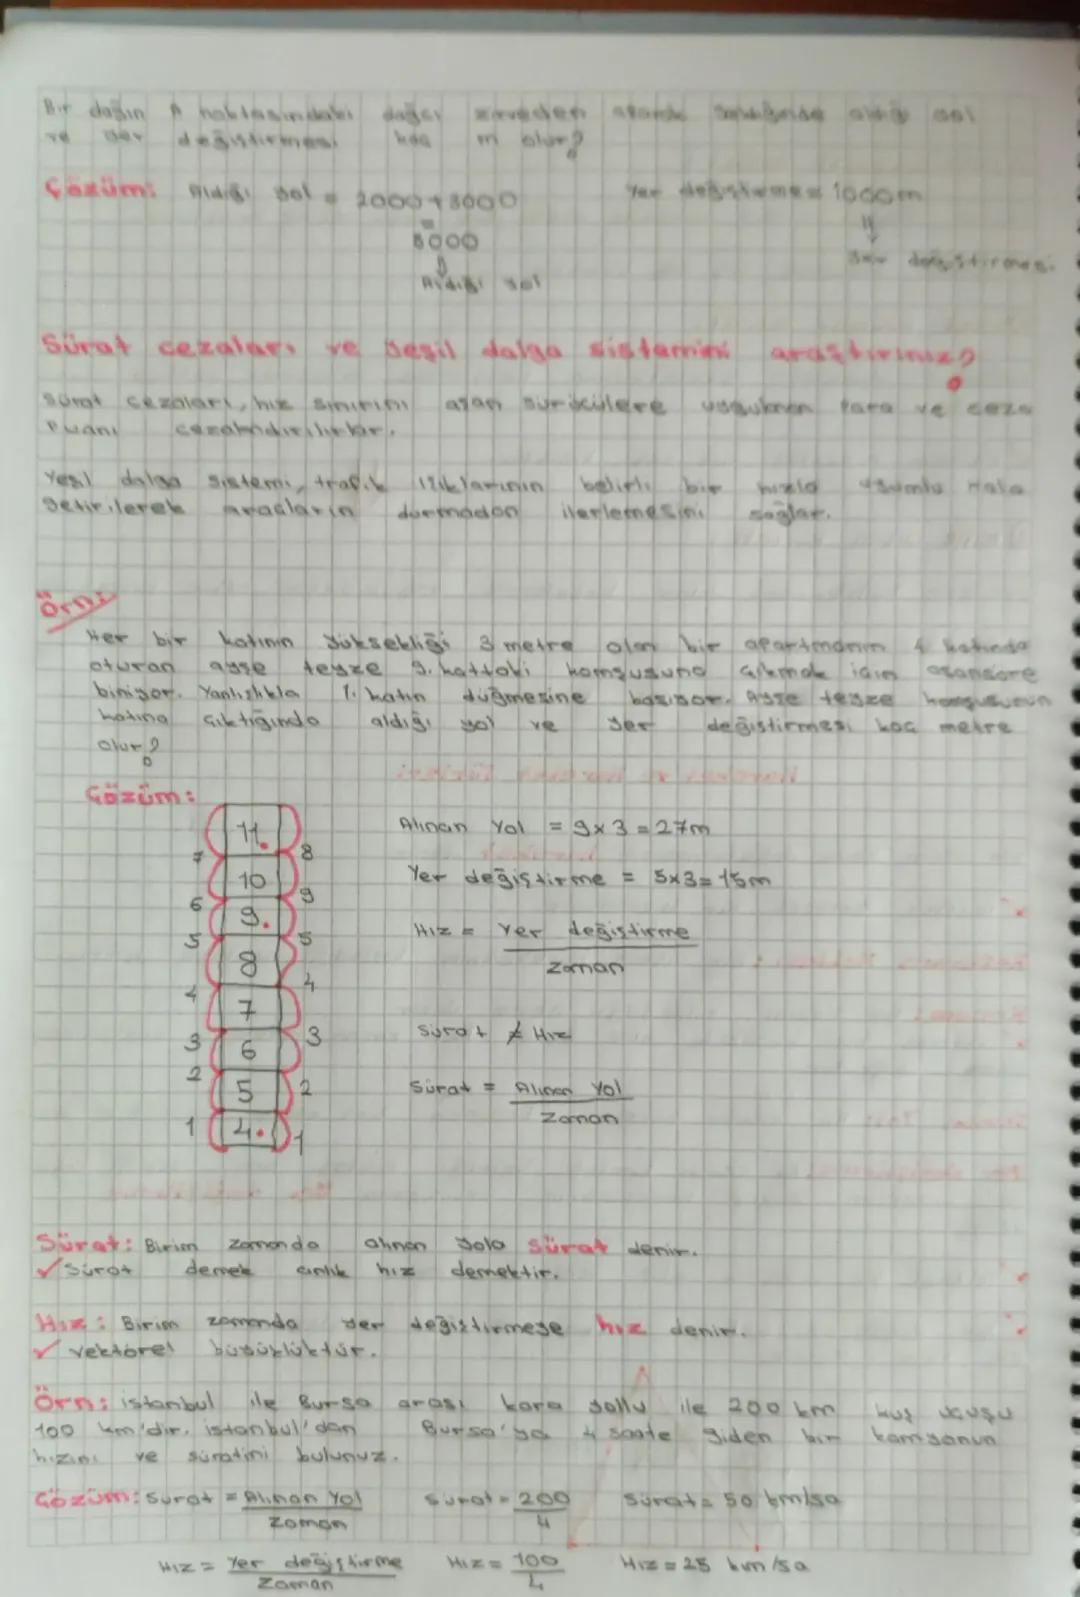 Bir dağın A noktasındaki dağcı zirveden aldığı yol
ve yer değiştirmesi kaç m olur?
Çözüm: Aldığı yol = 2000+3000
Yer değiştirme = 1000m
=
5000
Aldığı yol
yer değiştirmesi
Sürat cezaları ve yeşil dalga sistemini araştırınız?
Sürat cezaları, hız sınırını aşan sürücülere uygulanan para ve ceza
puanı cezalandırılırlar.
Yeşil dalga sistemi, trafik ışıklarının belirli bir hızla uyumlu hale
getirilerek araçların durmadan ilerlemesini sağlar.
Örn:
Her bir katının yüksekliği 3 metre olan bir apartmanın 4 katında
oturan ayşe teyze 9. kattaki komşusuna çıkmak için asansöre
biniyor. Yanlışlıkla 11. katın düğmesine basıyor. Ayşe teyze komşusunun
katına çıktığında aldığı yol ve yer değiştirmesi kaç metre
olur?
Çözüm:
11.
10
9.
8
7
6
5
4.
7
6
5
4
3
2
1
8
9
5
4
3
2
1
Alınan Yol = 9x3=27m
Yer değiştirme = 5x3=15m
Hız = Yer değiştirme
Zaman
Sürat ≠ Hız
Sürat = Alınan Yol
Zaman
Sürat: Birim zamanda alınan yola sürat denir.
✓ Sürat demek anlık hız demektir.
Hız: Birim zamanda yer değiştirmeye hız denir.
✓ Vektörel büyüklüktür.
Örn: istanbul ile Bursa arası kara yollu ile 200 km kuş uçuşu
100 km'dir. istanbul'dan Bursa'ya 4 saate giden bir kamyonun
hızını ve süratini bulunuz.
Çözüm: Sürat = Alınan Yol
Zaman
Sürat = 200
4
Sürat = 50 km/sa
Hız = Yer değiştirme
Zaman
Hız = 100
4
Hız = 25 km/sa